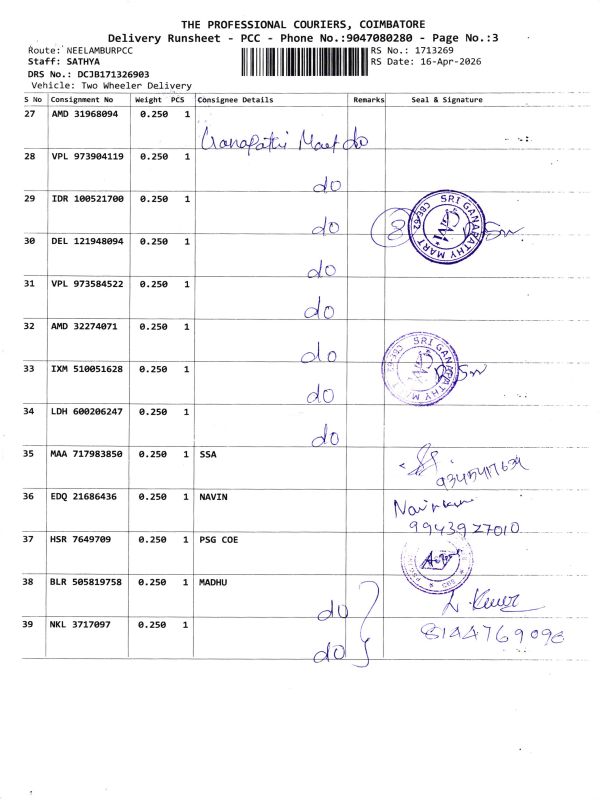 THE PROFESSIONAL COURIERS, COIMBATORE
Delivery Runsheet - PCC - Phone No.:9047080280 - Page No.:3
Route: NEELAMBURPCC
RS No.: 1713269
Staff: SATHYA
RS Date: 16-Apr-2026
DRS No.: DCJB171326903
Vehicle: Two Wheeler Delivery
S No Consignment No Weight PCS Consignee Details Remarks Seal & Signature
27 AMD 31968094 0.250 1
Ganapathi Mart do
28 VPL 973904119 0.250 1
do
29 IDR 100521700 0.250 1
do 8 SRI GANAPATHY MART CBE-62
30 DEL 121948094 0.250 1
do
31 VPL 973584522 0.250 1
do
32 AMD 32274071 0.250 1
do
33 IXM 510051628 0.250 1
do
34 LDH 600206247 0.250 1
do
35 MAA 717983850 0.250 1 SSA
36 EDQ 21686436 0.250 1 NAVIN
9943927010
37 HSR 7649709 0.250 1 PSG COE
38 BLR 505819758 0.250 1 MADHU
do
39 NKL 3717097 0.250 1
8144769098
do